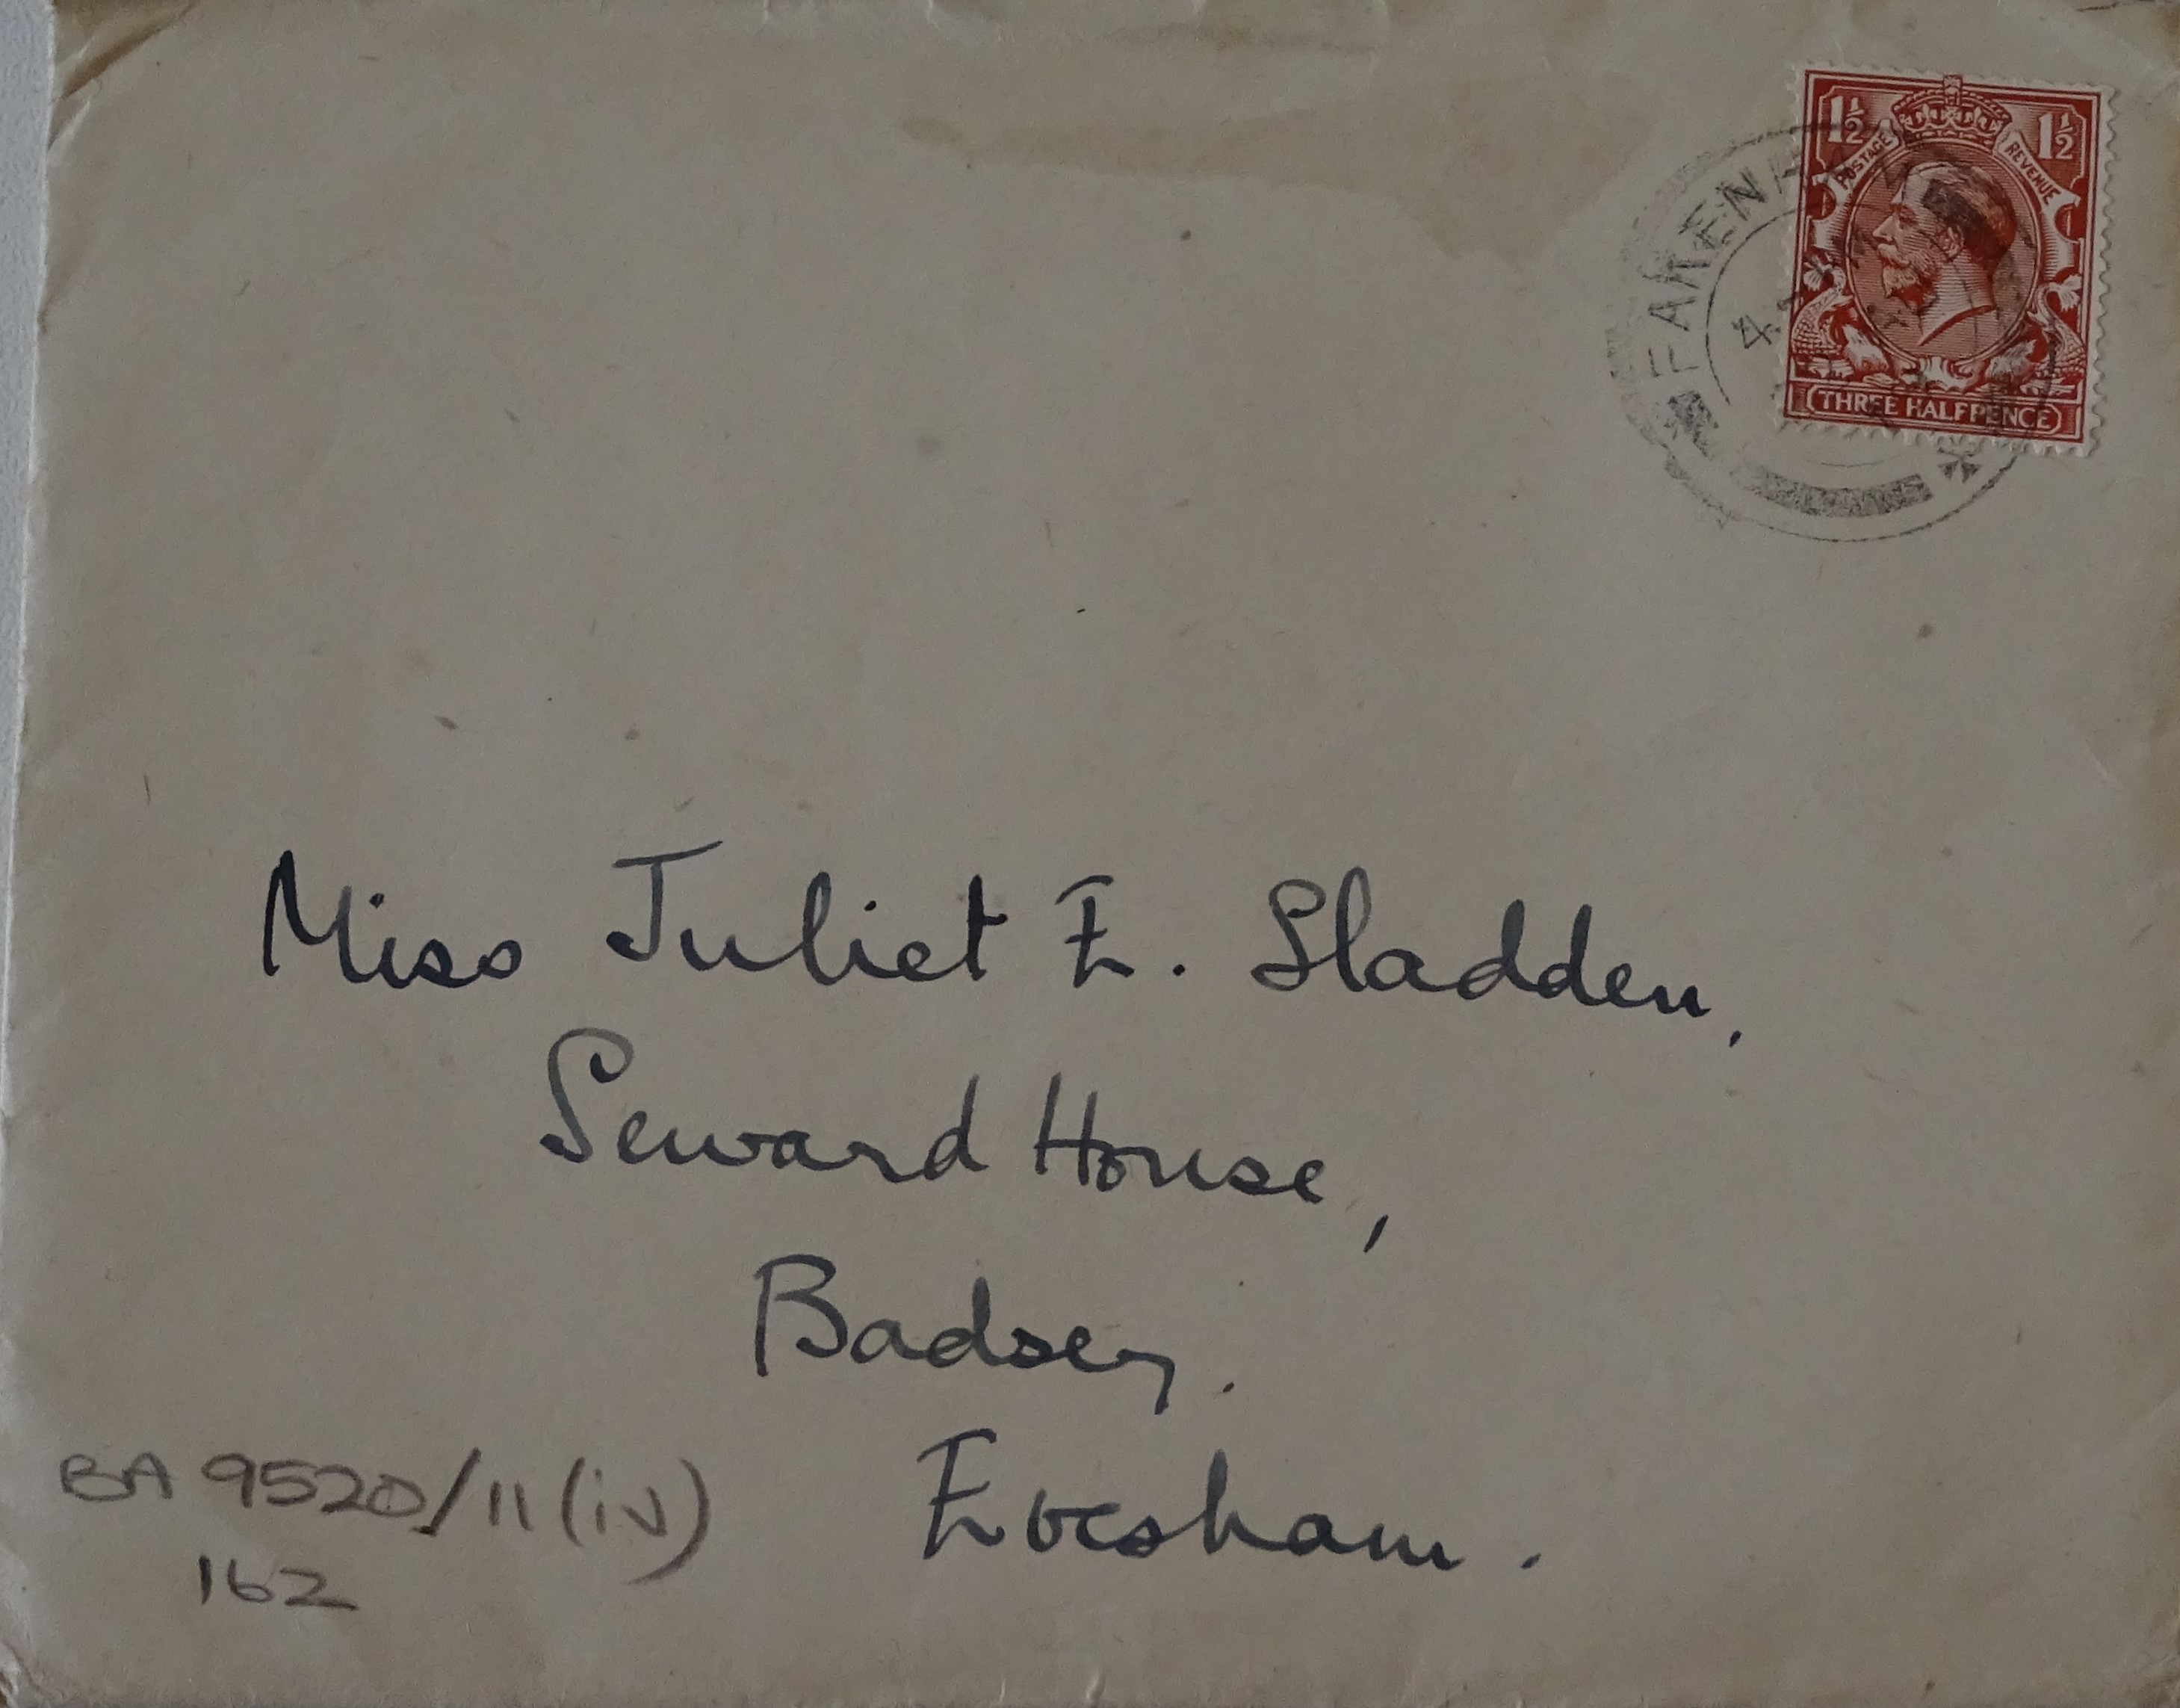 1½ 1½
POSTAGE REVENUE
THREE HALFPENCE
Miss Juliet E. Sladden,
Seward House,
Badsey.
Evesham.
BA 9520/11(iv)
162